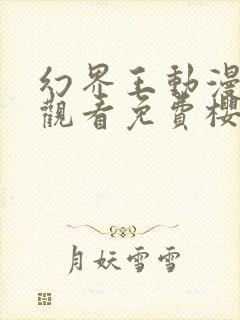 幻界王動漫
觀看免費櫻
月妖雪雪